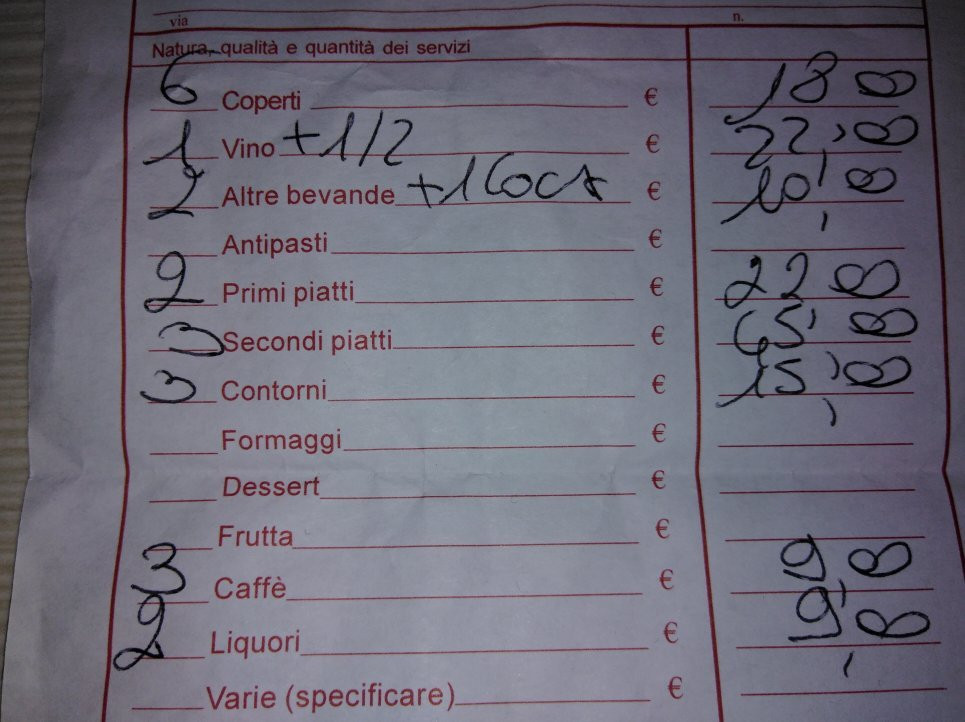 via n.
Natura, qualità e quantità dei servizi
6 Coperti € 18,00
1 Vino +1/2 € 22,00
2 Altre bevande +1 Coca € 10,00
Antipasti €
2 Primi piatti € 22,00
3 Secondi piatti € 65,00
3 Contorni € 15,00
Formaggi €
Dessert €
Frutta €
3 Caffè € 9,00
2 Liquori € 9,00
Varie (specificare) €